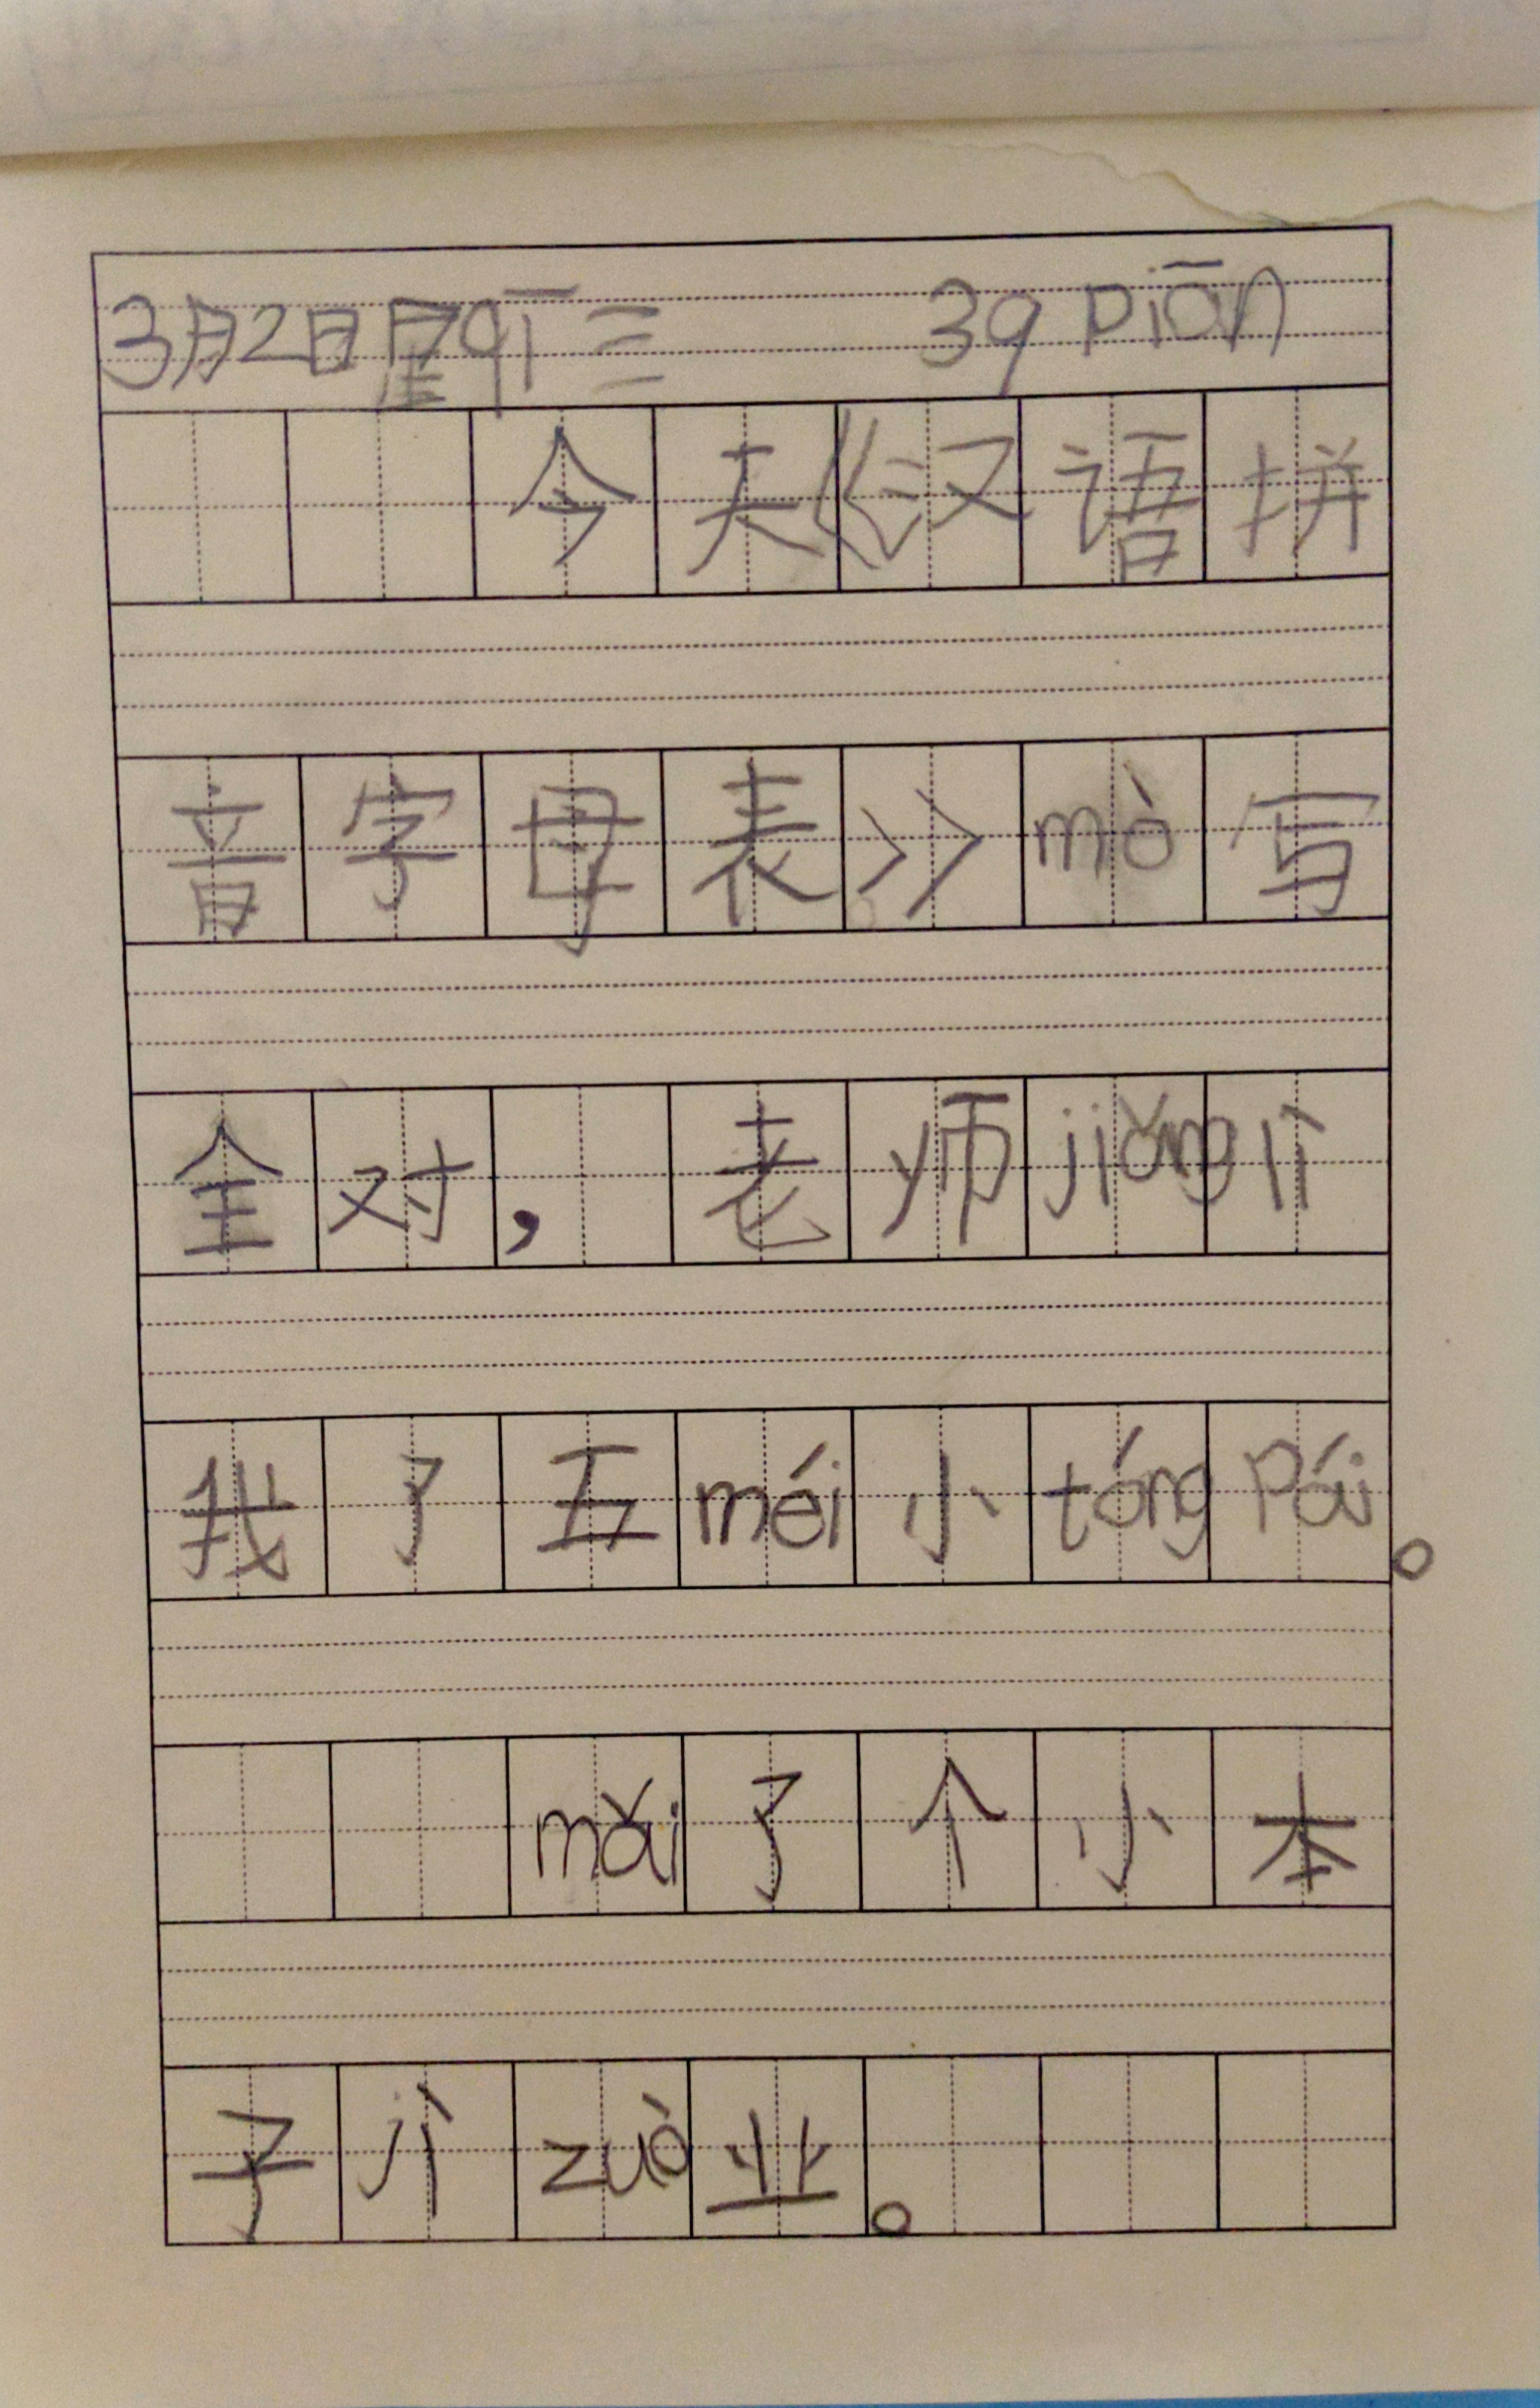 3月2日星qī三 39 piān
今天《汉语拼
音字母表》mò写
全对，老师jiǎng lì
我了五méi小tóng Pái。
mǎi了个小本
子jì zuò业。